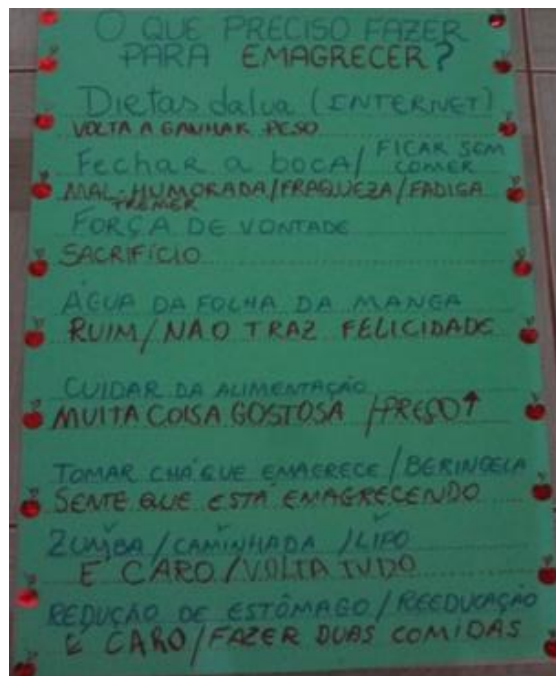 O QUE PRECISO FAZER
PARA EMAGRECER?
Dietas da lua (INTERNET)
VOLTA A GANHAR PESO
Fechar a boca/ FICAR SEM COMER
MAL-HUMORADA/FRAQUEZA/FADIGA
TREMER
FORÇA DE VONTADE
SACRIFÍCIO
ÁGUA DA FOLHA DA MANGA
RUIM/NÃO TRAZ FELICIDADE
CUIDAR DA ALIMENTAÇÃO
MUITA COISA GOSTOSA /PREÇO↑
TOMAR CHÁ QUE EMAGRECE/BERINGELA
SENTE QUE ESTÁ EMAGRECENDO
ZUMBA/CAMINHADA/LIPO
É CARO/VOLTA TUDO
REDUÇÃO DE ESTÔMAGO/REEDUCAÇÃO
É CARO/FAZER DUAS COMIDAS